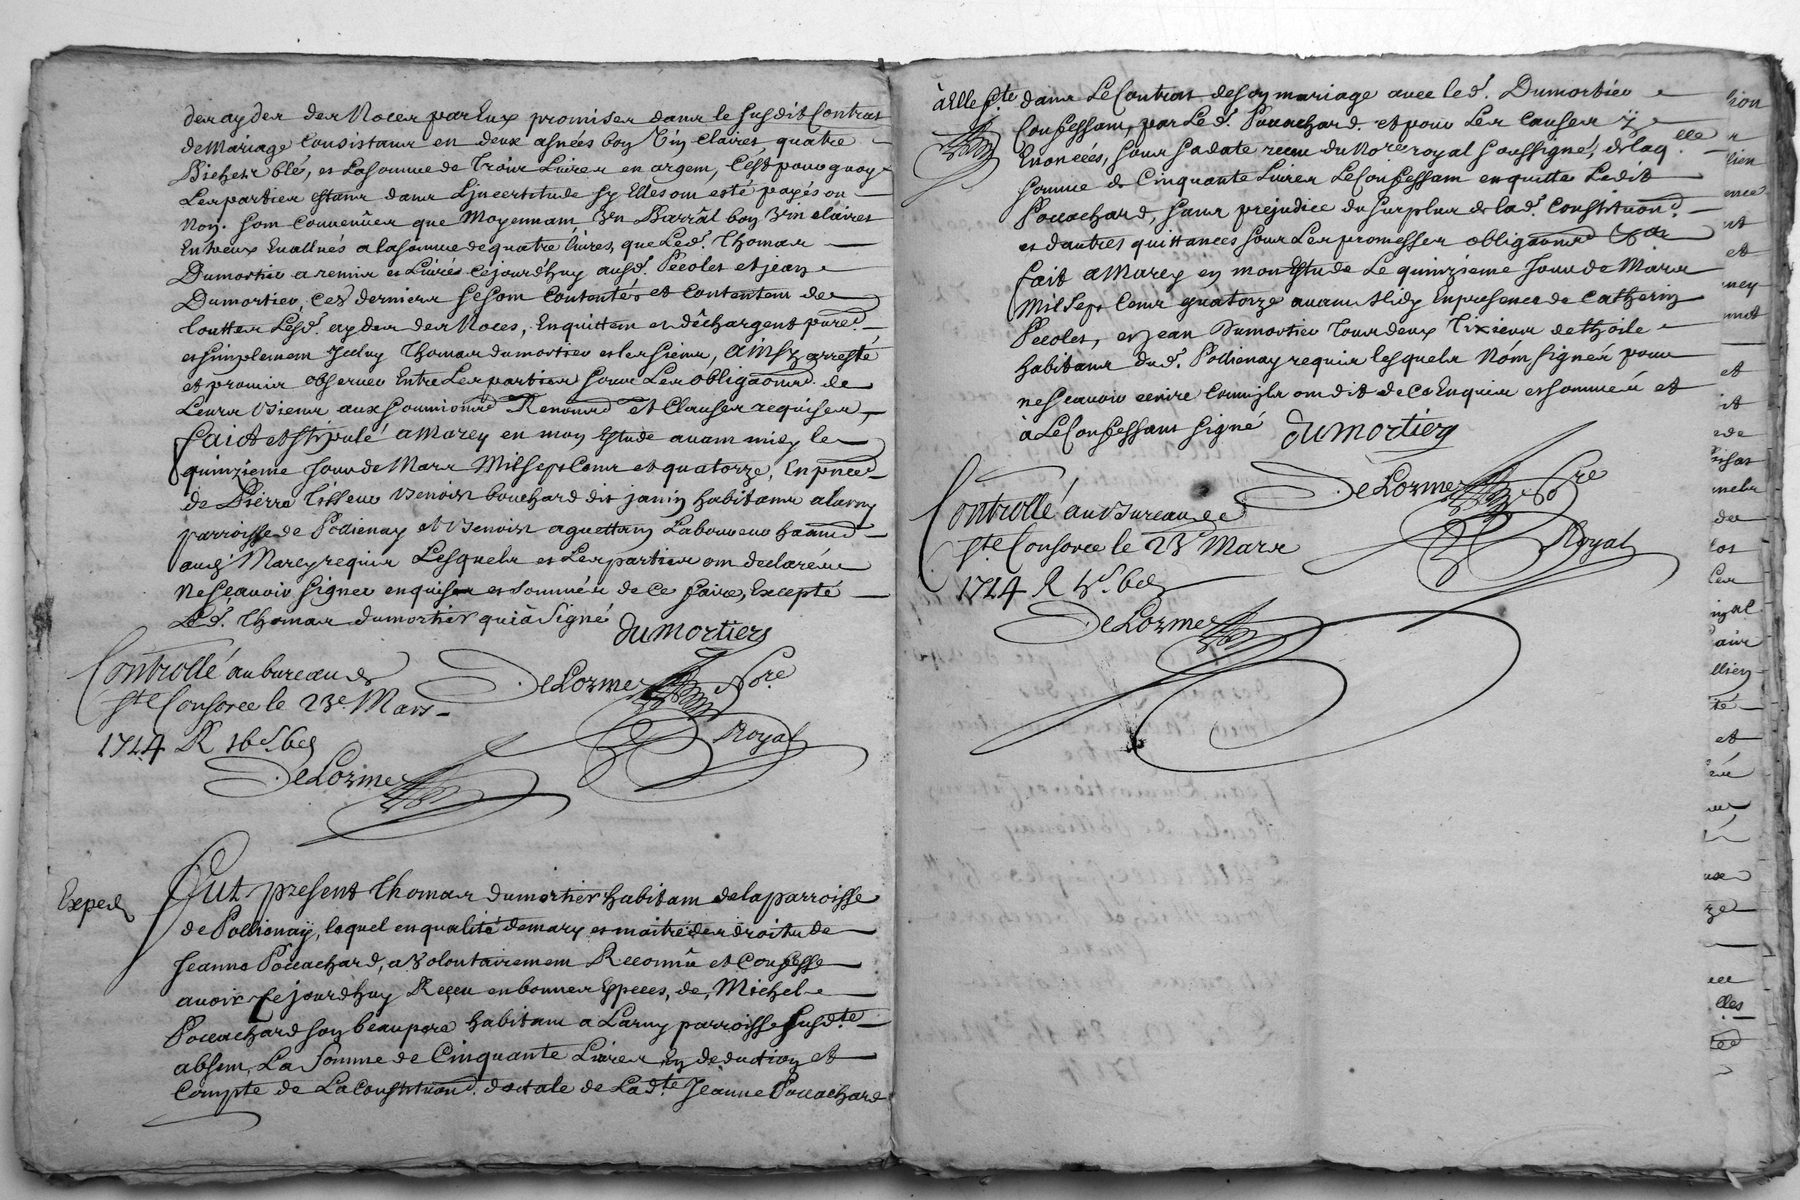 des aydes des Noces par Eux promises dans le susdit Contrat
de Mariage Consistans en deux asnées bon Vin Claires, quatre
Bichets blé, et La somme de trois Livres en argent, C'est pourquoy
Les parties Estans dans L'incertitude sy Elles ont esté payés ou
Non. sont Convenües que Moyennant, Vn Barral bon Vin claires
Entreux Evallués a la somme de quatre Livres, que Led. Thomas
Dumortier a remis et Livrés cejourd'huy ausd. Pecolet et jean
Dumortier, Ces derniers se sont Contentés et Contentent de
touttes Lesd. aydes des Noces, Enquittent et déchargent pured.
et simplement Iceluy Thomas dumortier et les siens, Ainsy arresté
et promis observer Entre Les parties sous Les obligaons de
Leurs Biens aux soumions Renons et Clauses requises,
Faict et stipulé a Marcy en mon Estude avant midy le
quinzieme Jour de Mars Mil sept Cens et quatorze, En pnce
de Pierre tisseur Benoist bouchard dit janin habitans a Larny
parroisse de Pollienay et Benoist aguettant Laboureur haant
aud Marcy requis Lesquels et Les parties ont declaré
ne sçavoir signer enquises et sommés de Ce faire, Excepté
Led. Thomas dumortier qui a Signé
dumortier
Controllé au bureau de
Ste Consorce le 23e. Mars
1714 R
DeLorme Nore
Royal
DeLorme
Exped
Fut present Thomas dumortier habitant de la parroisse
de Pollienay, lequel en qualité de mary et maitre des droits de
Jeanne Pouachard, a Volontairement Reconnû et Confessé
avoir Cejourdhuy Reçeu en bonnes Especes, de, Michel
Pouachard son beaupere habitant a Larny parroisse susdte
absent, La somme de Cinquante Livres En deduction et
Compte de La Constituon dottale de Ladte Jeanne Pouachard
à Elle fte dans Le Contrat de son mariage avec led. Dumortier
Confessant, par Led. Pouachard et pour Les Causes y
Enoncées, sous sa date receu du Nore royal soussigné, de laqlle
somme de Cinquante Livres Le Confessant en quitte Ledit
Pouachard, sans prejudice du surplus de lad. Constituon
et dautres quittances sous Les promesses obligaons &a
Fait a Marcy en mon Estude Le quinzieme Jour de Mars
Mil sept Cens quatorze avant Midy En presence de Catherin
Pecolet, et jean Dumortier tous deux tixieurs de thoile
habitans dud. Pollienay requis lesquels N'ont signés pour
ne sçavoir ecrire Comm'ils ont dit de Ce Enquis et sommés et
à Le Confessant signé
dumortier
DeLorme Nore
Royal
Controllé au Bureau de
Ste Consorce le 23 Mars
1714 R
DeLorme